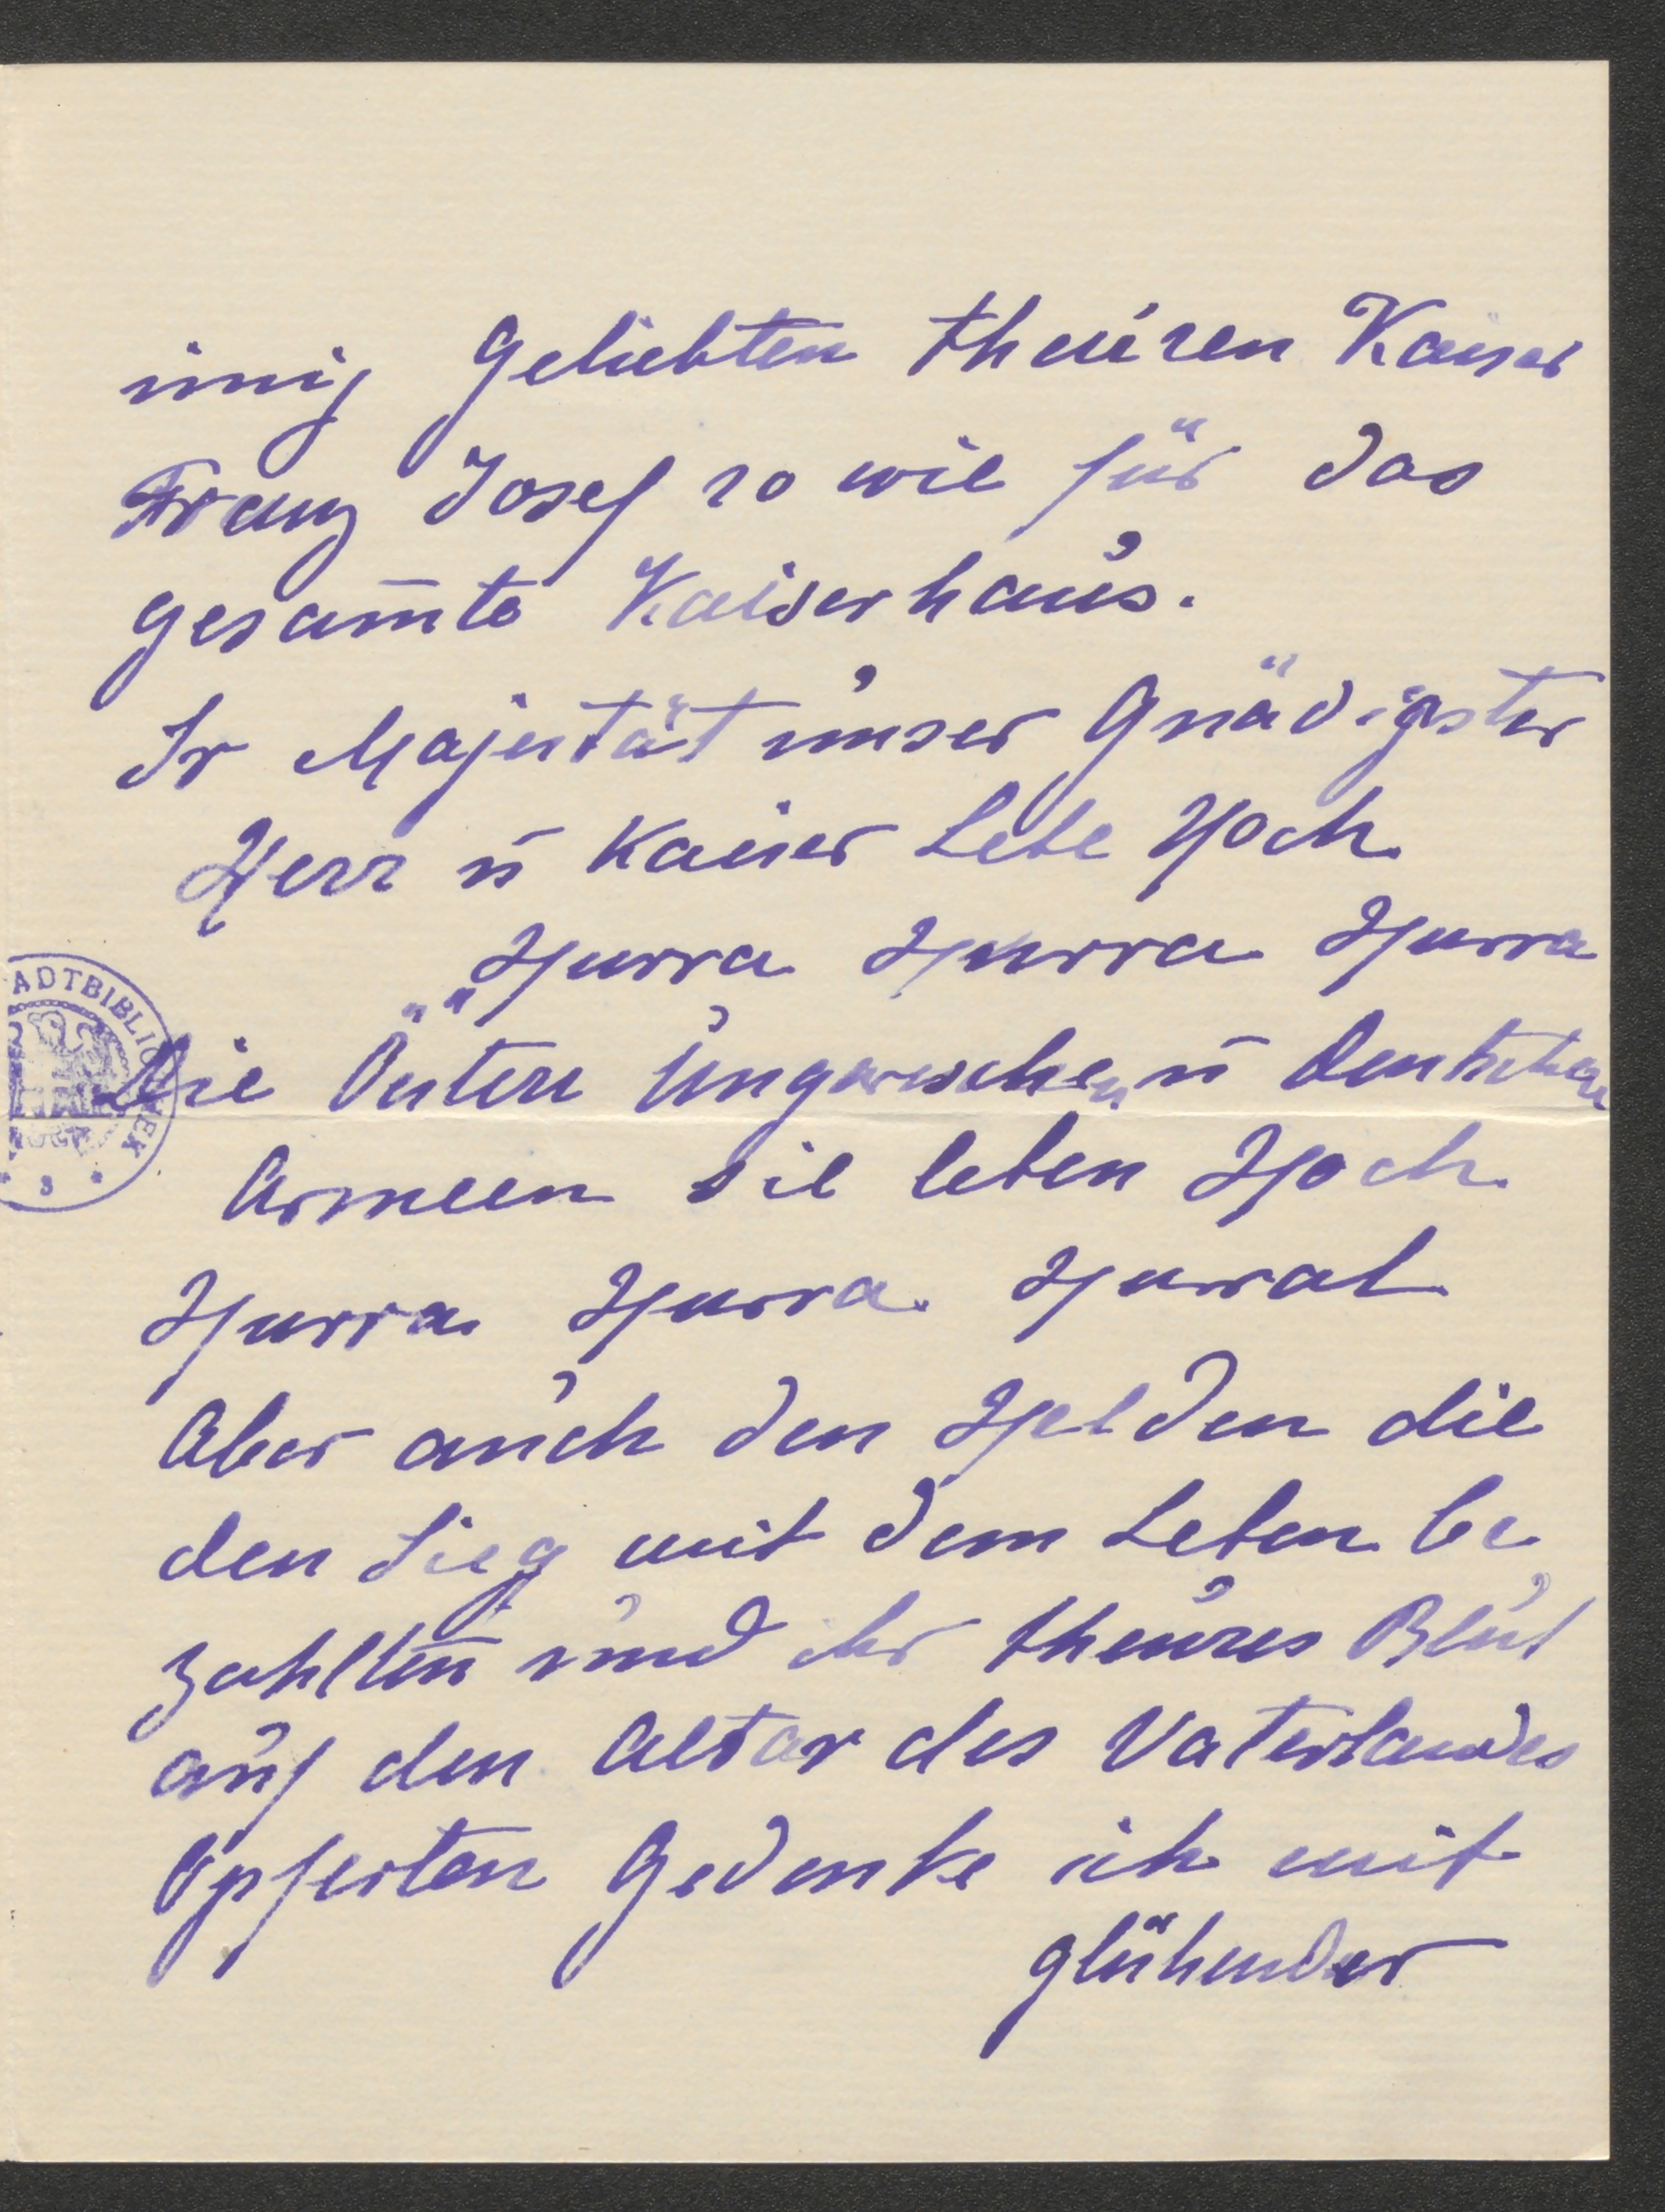 innig Geliebten theuren Kaiser
Franz Josef so wie für das
gesam̅te Kaiserhaus.
Sr Majestät unser Gnädigster
Herr u Kaiser Lebe Hoch
Hurra Hurra Hurra
Die Österr Ungarischen u Deutschen
Armeen sie leben Hoch
Hurra Hurra. Hurra!
Aber auch den Helden die
den Sieg mit dem Leben be
zahlten und ihr theures Blut
auf den Altar des Vaterlandes
Opferten Gedenke ich mit
glühender
ADTBIBLIO EK